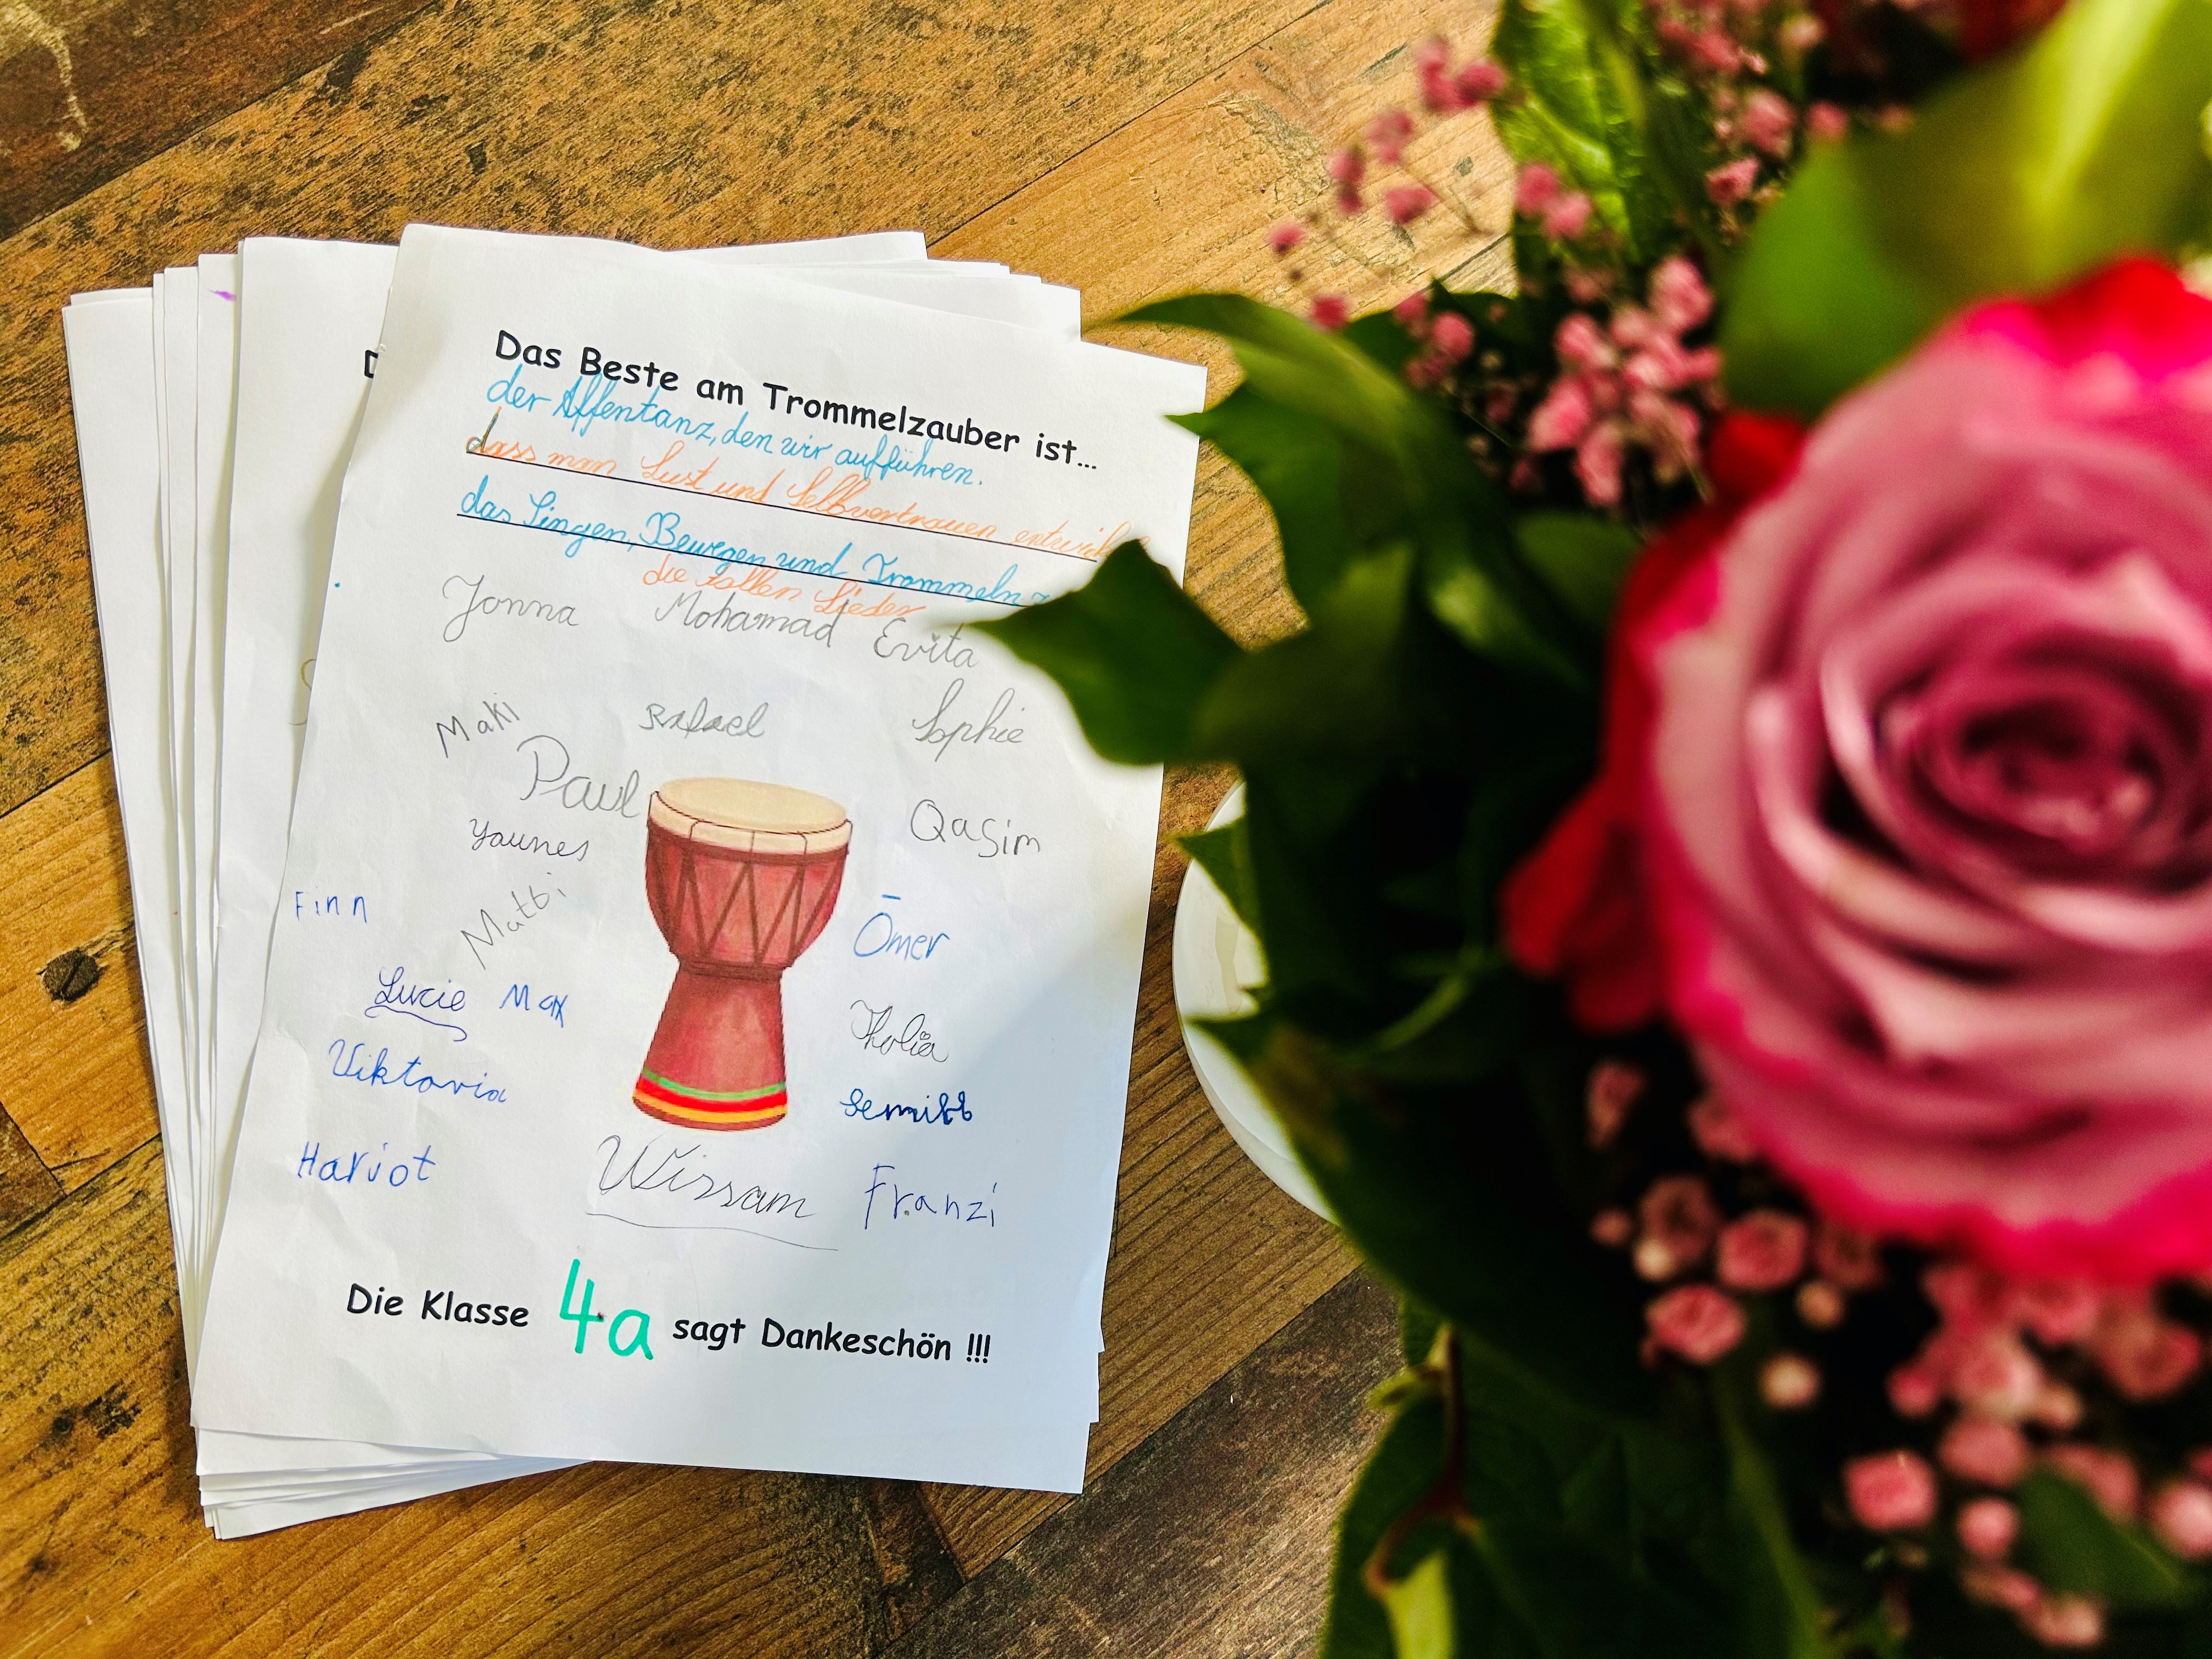 Das Beste am Trommelzauber ist...
der Affentanz, den wir aufführen.
dass man Lust und Selbvertrauen
das Singen, Bewegen und Trommeln
die tollen Lieder
Jonna Mohamad Evita
Maki Rafael Sophie
Paul
Younes Qasim
Finn Ömer
Lucie Max
Tholia
Viktoria
Hariot Wissam Franzi
Die Klasse 4a sagt Dankeschön !!!